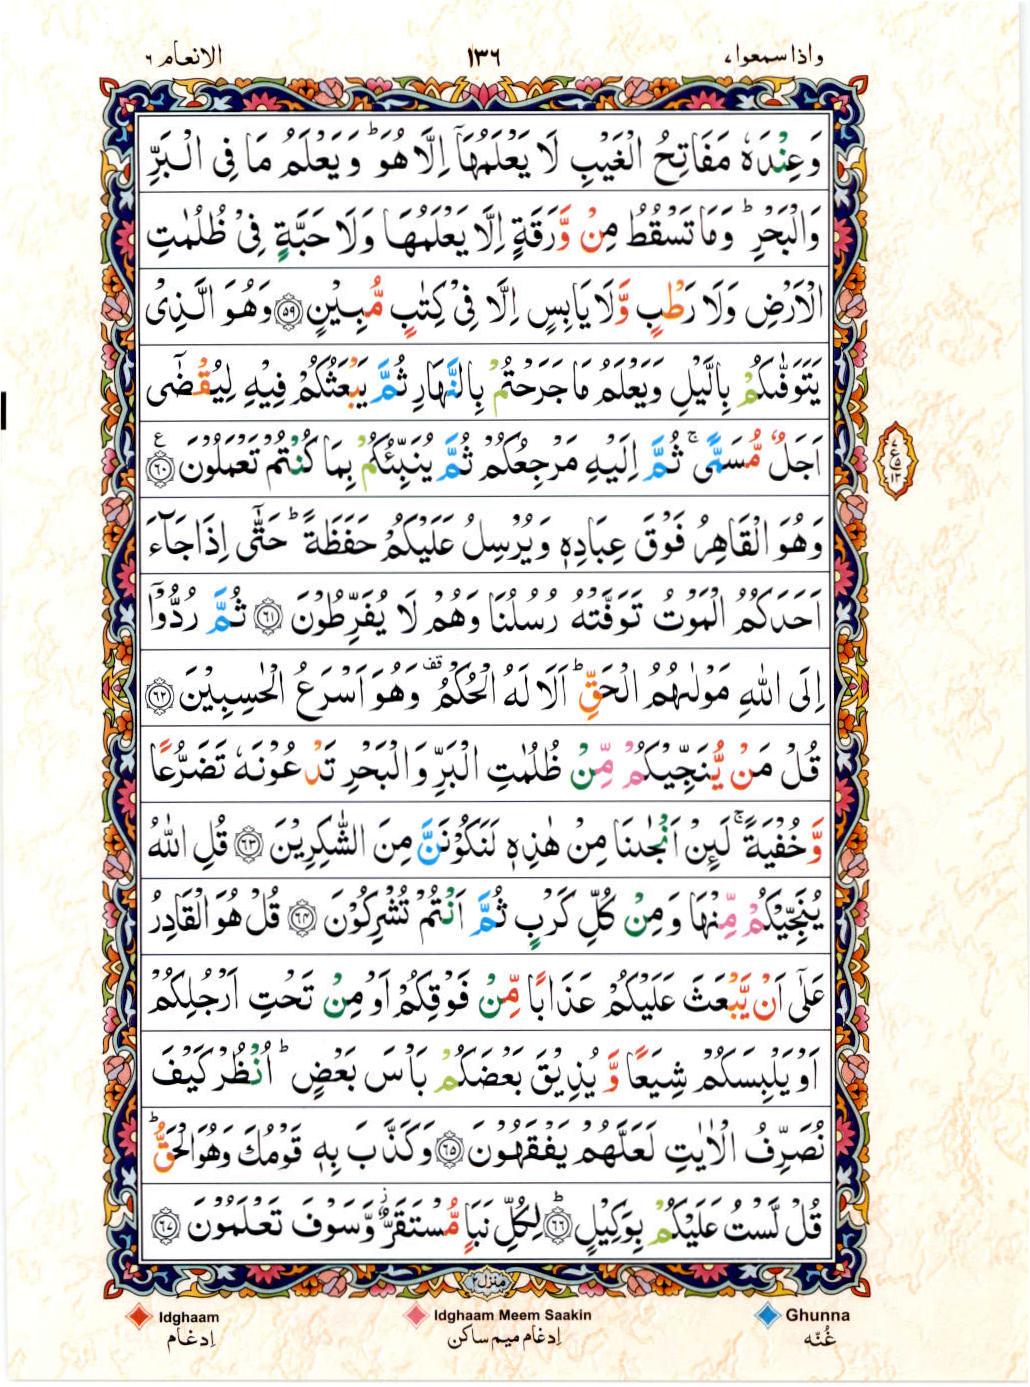 واذا سمعوا ٧ ١٣٦ الانعام ٦
وَعِنْدَهٗ مَفَاتِحُ الْغَيْبِ لَا يَعْلَمُهَاۤ اِلَّا هُوَ ؕ وَيَعْلَمُ مَا فِى الْبَرِّ
وَالْبَحْرِ ؕ وَمَا تَسْقُطُ مِنْ وَّرَقَةٍ اِلَّا يَعْلَمُهَا وَلَا حَبَّةٍ فِىْ ظُلُمٰتِ
الْاَرْضِ وَلَا رَطْبٍ وَّلَا يَابِسٍ اِلَّا فِىْ كِتٰبٍ مُّبِيْنٍ ﴿٥٩﴾ وَهُوَ الَّذِىْ
يَتَوَفّٰٮكُمْ بِالَّيْلِ وَيَعْلَمُ مَا جَرَحْتُمْ بِالنَّهَارِ ثُمَّ يَبْعَثُكُمْ فِيْهِ لِيُقْضٰٓى
اَجَلٌ مُّسَمًّى ۚ ثُمَّ اِلَيْهِ مَرْجِعُكُمْ ثُمَّ يُنَبِّئُكُمْ بِمَا كُنْتُمْ تَعْمَلُوْنَ ﴿٦٠﴾ ع
وَهُوَ الْقَاهِرُ فَوْقَ عِبَادِهٖ وَيُرْسِلُ عَلَيْكُمْ حَفَظَةً ؕ حَتّٰٓى اِذَا جَآءَ
اَحَدَكُمُ الْمَوْتُ تَوَفَّتْهُ رُسُلُنَا وَهُمْ لَا يُفَرِّطُوْنَ ﴿٦١﴾ ثُمَّ رُدُّوْۤا
اِلَى اللّٰهِ مَوْلٰٮهُمُ الْحَقِّ ؕ اَلَا لَهُ الْحُكْمُ قف وَهُوَ اَسْرَعُ الْحٰسِبِيْنَ ﴿٦٢﴾
قُلْ مَنْ يُّنَجِّيْكُمْ مِّنْ ظُلُمٰتِ الْبَرِّ وَالْبَحْرِ تَدْعُوْنَهٗ تَضَرُّعًا
وَّخُفْيَةً ۚ لَئِنْ اَنْجٰٮنَا مِنْ هٰذِهٖ لَنَكُوْنَنَّ مِنَ الشّٰكِرِيْنَ ﴿٦٣﴾ قُلِ اللّٰهُ
يُنَجِّيْكُمْ مِّنْهَا وَمِنْ كُلِّ كَرْبٍ ثُمَّ اَنْتُمْ تُشْرِكُوْنَ ﴿٦٤﴾ قُلْ هُوَ الْقَادِرُ
عَلٰٓى اَنْ يَّبْعَثَ عَلَيْكُمْ عَذَابًا مِّنْ فَوْقِكُمْ اَوْ مِنْ تَحْتِ اَرْجُلِكُمْ
اَوْ يَلْبِسَكُمْ شِيَعًا وَّ يُذِيْقَ بَعْضَكُمْ بَاْسَ بَعْضٍ ؕ اُنْظُرْ كَيْفَ
نُصَرِّفُ الْاٰيٰتِ لَعَلَّهُمْ يَفْقَهُوْنَ ﴿٦٥﴾ وَكَذَّبَ بِهٖ قَوْمُكَ وَهُوَ الْحَقُّ ؕ
قُلْ لَّسْتُ عَلَيْكُمْ بِوَكِيْلٍ ؕ ﴿٦٦﴾ لِكُلِّ نَبَاٍ مُّسْتَقَرٌّ ز وَّسَوْفَ تَعْلَمُوْنَ ﴿٦٧﴾
منزل ٢
Idghaam Idghaam Meem Saakin Ghunna
اِدغام اِدغام میم ساکن غُنّه